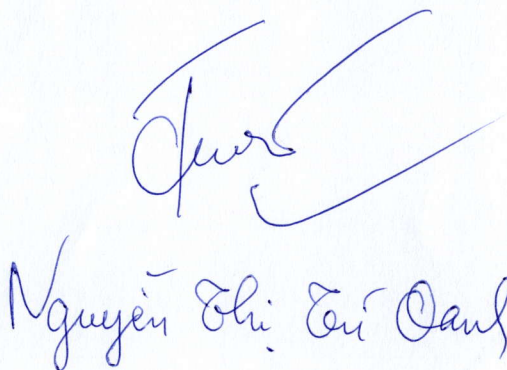 Nguyễn Thị Tú Oanh